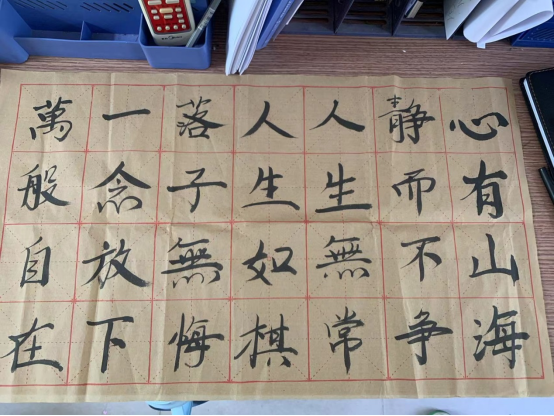 心有山海
静而不争
人生無常
人生如棋
落子無悔
一念放下
萬般自在